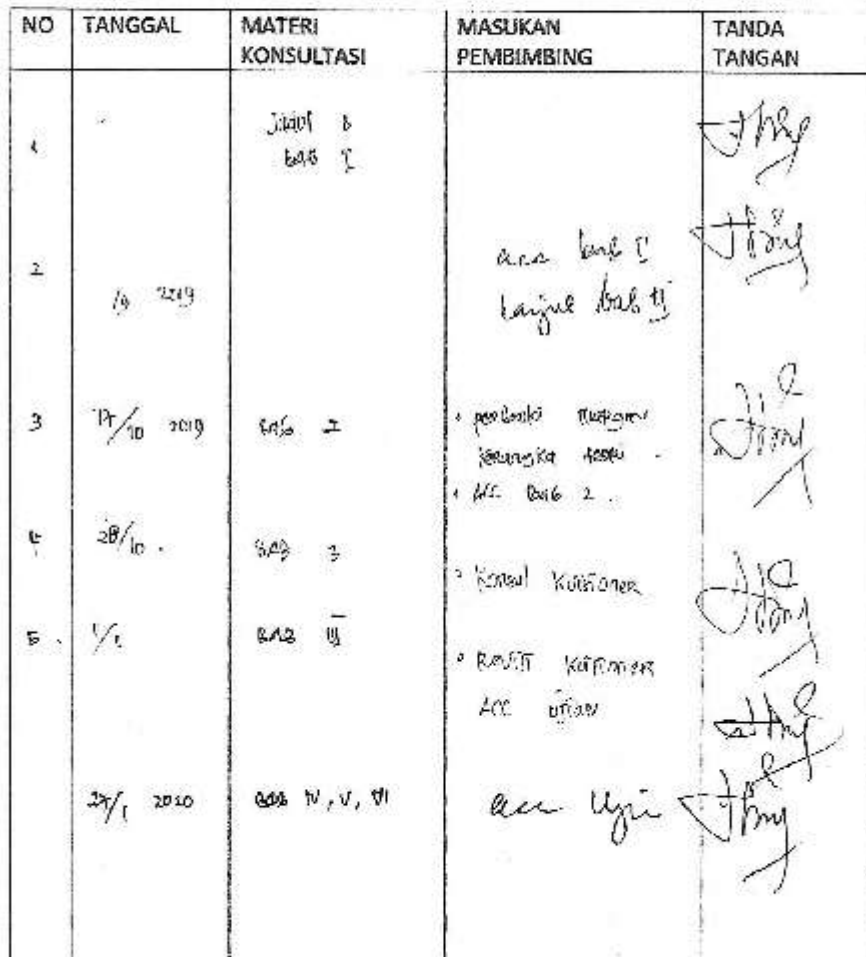 NO TANGGAL MATERI KONSULTASI MASUKAN PEMBIMBING TANDA TANGAN
1 Judul &
BAB I
2 acc bab I
/9 2019 lanjut bab II
3 /10 2019 BAB 2
kerangka teori
ACC Bab 2
4 28/10 BAB 3
Konsul Kuesioner
5 BAB III
Revisi Kuesioner
ACC Ujian
2020 BAB IV, V, VI acc Ujian